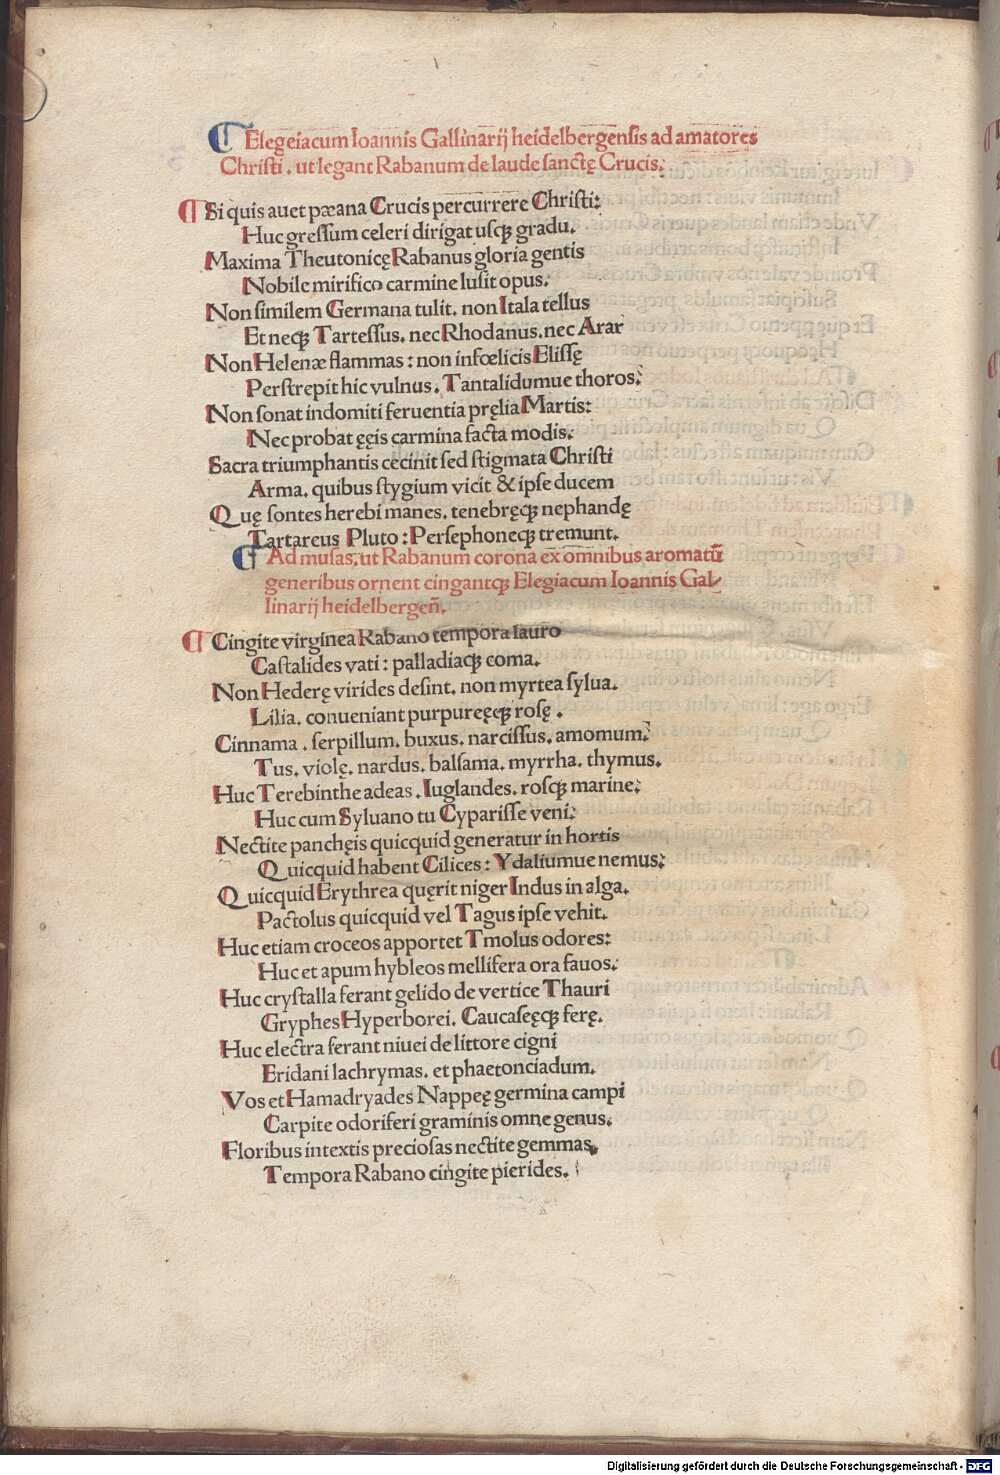 ¶ Elegeiacum Ioannis Gallinarij heidelbergensis ad amatores
Christi. ut legant Rabanum de laude sanctę Crucis:
¶ Si quis auet pæana Crucis percurrere Christi:
Huc gressum celeri dirigat usqꝫ gradu.
Maxima Theutonicę Rabanus gloria gentis
Nobile mirifico carmine lusit opus:
Non similem Germana tulit. non Itala tellus
Et neqꝫ Tartessus. nec Rhodanus. nec Arar
Non Helenæ flammas: non infœlicis Elissę
Perstrepit hic vulnus. Tantalidumue thoros:
Non sonat indomiti feruentia pręlia Martis:
Nec probat ęgis carmina facta modis:
Sacra triumphantis cecinit sed stigmata Christi
Arma. quibus stygium vicit & ipse ducem
Quę sontes herebi manes. tenebręqꝫ nephandę
Tartareus Pluto: Persephoneqꝫ tremunt.
¶ Ad musas: ut Rabanum corona ex omnibus aromatū
generibus ornent cingantqꝫ Elegiacum Ioannis Gal/
linarij heidelbergeñ.
¶ Cingite virginea Rabano tempora lauro
Castalides vati: palladiaqꝫ coma.
Non Hederę virides desint. non myrtea sylua.
Lilia. conueniant purpuręęqꝫ rosę.
Cinnama. serpillum. buxus. narcissus. amomum:
Tus. violę. nardus. balsama. myrrha. thymus.
Huc Terebinthe adeas. Iuglandes. rosqꝫ marine:
Huc cum Syluano tu Cyparisse veni:
Nectite panchęis quicquid generatur in hortis
Quicquid habent Cilices: Ydaliumue nemus:
Quicquid Erythrea quęrit niger Indus in alga.
Pactolus quicquid vel Tagus ipse vehit.
Huc etiam croceos apportet Tmolus odores:
Huc et apum hybleos mellifera ora fauos:
Huc crystalla ferant gelido de vertice Thauri
Gryphes Hyperborei. Caucaseęqꝫ ferę.
Huc electra ferant niuei de littore cigni
Eridani lachrymas. et phaetonciadum.
Vos et Hamadryades Nappeę germina campi
Carpite odoriferi graminis omne genus.
Floribus intextis preciosas nectite gemmas.
Tempora Rabano cingite pierides.
Digitalisierung gefördert durch die Deutsche Forschungsgemeinschaft - DFG